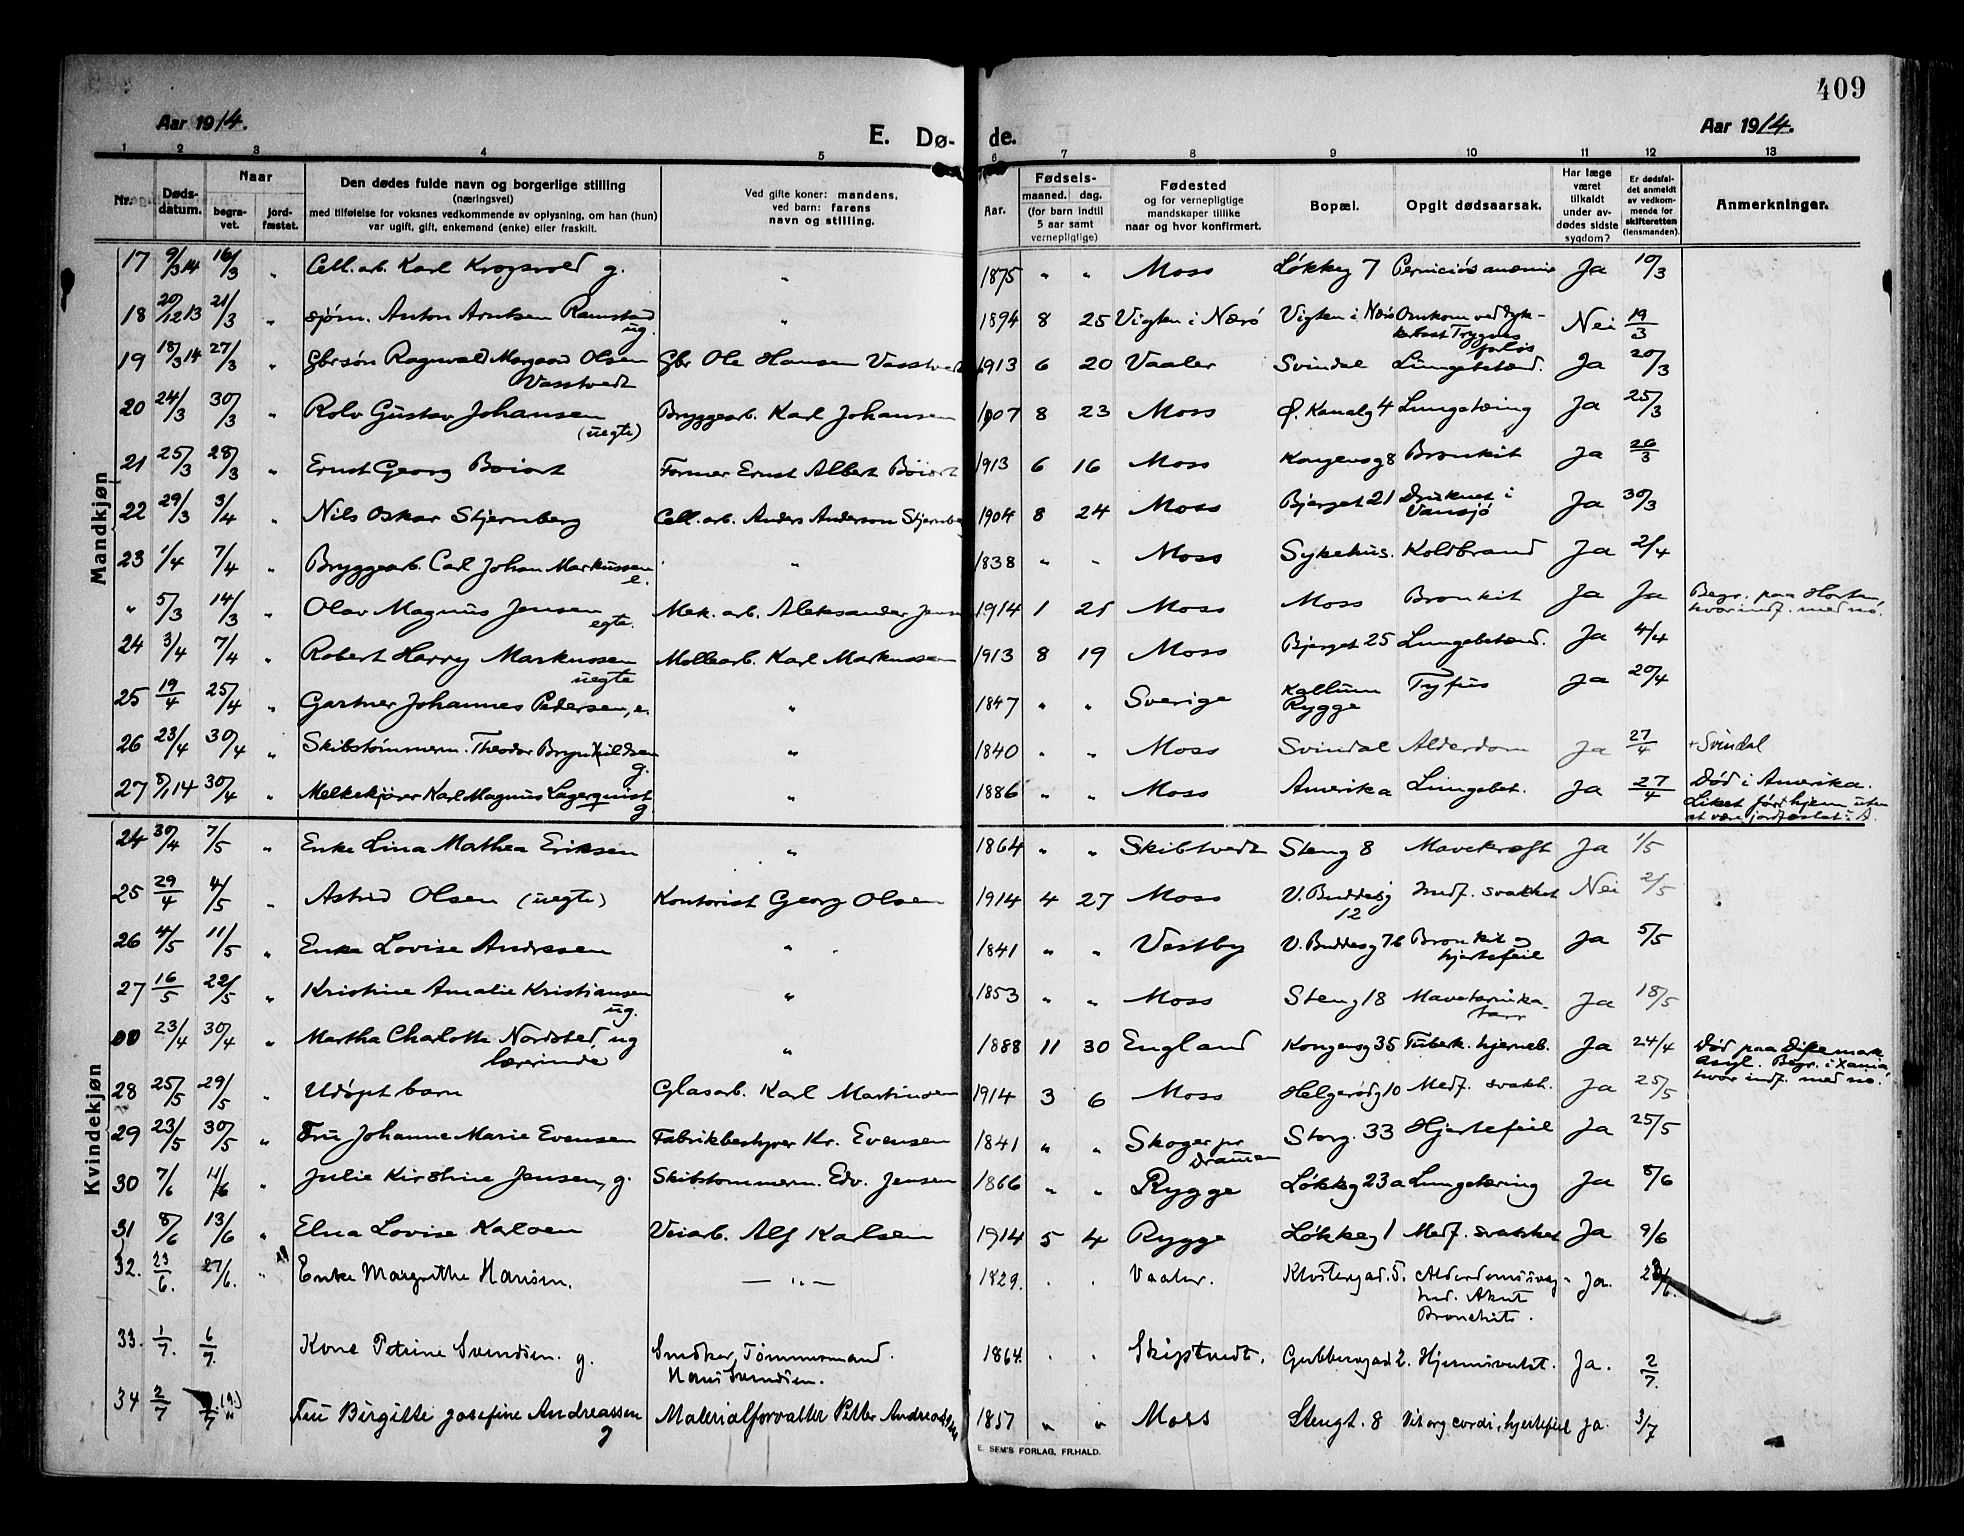 409
Aar 1914.
E. Dø- de.
Aar 1914.
1 2 3 4 5 6 7 8 9 10 11 12 13
Nr. Døds-datum. Naar begra-vet. jord-fæstet. Den dødes fulde navn og borgerlige stilling (næringsvei) med tilføielse for voksnes vedkommende av oplysning, om han (hun) var ugift, gift, enkemand (enke) eller fraskilt. Ved gifte koner: mandens, ved barn: farens navn og stilling. Aar. Fødsels- maaned. dag. (for barn indtil 5 aar samt vernepligtige) Fødested og for vernepligtige mandskaper tillike naar og hvor konfirmert. Bopæl. Opgit dødsaarsak. Har læge været tilkaldt under av-dødes sidste sygdom? Er dødsfal-det anmeldt av vedkom-mende for skifteretten (lensmanden). Anmerkninger.
Mandkjøn
17 9/3 14 16/3 " Cell. arb. Karl Krogsvold g. " 1875 " " Moss Løkkeg 7 Perniciøs anæmie Ja 10/3
18 20/12 13 21/3 " sjøm. Anton Arntsen Ramstad ug. " 1894 8 25 Vigten i Nærø Vigten i Nærø Omkom ved Trygves forlis Nei 19/3
19 18/3 14 27/3 " Gbrsøn Ragnvald Magnus Olsen Vasstvedt Gbr Ole Hansen Vasstvedt 1913 6 20 Vaaler Svindal Lungebetænd. Ja 20/3
20 24/3 30/3 " Rolv Gustav Johansen (uegte) Bryggearb. Karl Johansen 1907 8 23 Moss Ø. Kanalg 4 Lungetæring Ja 25/3
21 25/3 28/3 " Ernst Georg Boiort Former Ernst Albert Boiort 1913 6 16 Moss Kongensg 8 Bronkit Ja 26/3
22 29/3 3/4 " Nils Oskar Stjernberg Cell. arb. Anders Anderson Stjernbe 1904 8 24 Moss Bjerget 21 Druknet i Vansjø Ja 30/3
23 1/4 7/4 " Bryggearb. Carl Johan Markussen e. " 1838 " " Moss Sykehus. Koldbrand Ja 2/4
" 5/3 14/3 " Olav Magnus Jensen egte. Mek. arb. Aleksander Jens 1914 1 25 Moss Moss Bronkit Ja Ja Begr. paa Horten, hvor indf. med no.
24 3/4 7/4 " Robert Harry Markussen uegte Mollearb. Karl Markussen 1913 8 19 Moss Bjerget 25 Lungebetænd. Ja 4/4
25 19/4 25/4 " Gartner Johannes Pedersen, e. " 1847 " " Sverige Kallum Rygge Tyfus Ja 20/4
26 23/4 30/4 " Skibstømmerm. Theodor Brynhildsen g. " 1840 " " Moss Svindal Alderdom Ja 27/4 + Svindal
27 8/1 14 30/4 " Melkekjører Karl Magnus Lagerquist g " 1886 " " Moss Amerika Lungebet. Ja 27/4 Død i Amerika. Liket ført hjem uten at være jordfæstet i A.
Kvindekjøn
24 30/4 7/5 " Enke Lina Mathea Eriksen " 1864 " " Skibtvedt Steng 8 Mavekræft Ja 1/5
25 29/4 4/5 " Astrid Olsen (uegte) Kontorist Georg Olsen 1914 4 27 Moss V. Buddesg 12 Medf. svakhet Nei 2/5
26 4/5 11/5 " Enke Lovise Andresen " 1841 " " Vestby V. Buddesg 76 Bronkit og hjertefeil Ja 5/5
27 16/5 22/5 " Kristine Amalie Kristiansen ug. " 1853 " " Moss Steng 18 Ja 18/5
00 23/4 30/4 " Martha Charlotte Nordsted, ug lærerinde " 1888 11 30 England Kongensg 35 Tuberk. hjerneb. Ja 24/4 Død paa Dikemark Asyl. Begr. i Xania hvor indf. med no.
28 25/5 29/5 " Udøpt barn Glasarb. Karl Martinsen 1914 3 6 Moss Helgerødg 10 Medf. svakh. Ja 25/5
29 23/5 30/5 " Fru Johanne Marie Evensen Fabrikbestyrer Kr. Evensen 1841 " " Skoger pr Drammen Storg. 33 Hjertefeil Ja 25/5
30 7/6 11/6 " Julie Kirstine Jensen, g. Skibstømmerm. Edv. Jensen 1866 " " Rygge Løkkeg 23a Lungetæring Ja 8/6
31 8/6 13/6 " Elna Lovise Karlsen Veiarb. Alf Karlsen 1914 5 4 Rygge Løkkeg 1 Medf. svakhet Ja 9/6
32. 23/6. 27/6. " Enke Margrethe Hansen. — " — 1829. . . Vaaler. Klostergad. 5. Akut Bronchit. Ja.
33. 1/7. 6/7. Kone Petrine Svendsen. g. Snedker, Tømmermand. Hans Svendsen. 1864. . . Skiptvedt. Gubbergad 2. Ja. 2/7.
34 2/7 Fru Birgitte Josefine Andreassen g Materialforvalter Petter Andreassen 1857 " " Moss Stengt. 8 Vit. org. cordis, hjertefeil Ja. 3/7
E. SEM'S FORLAG, FR.HALD.